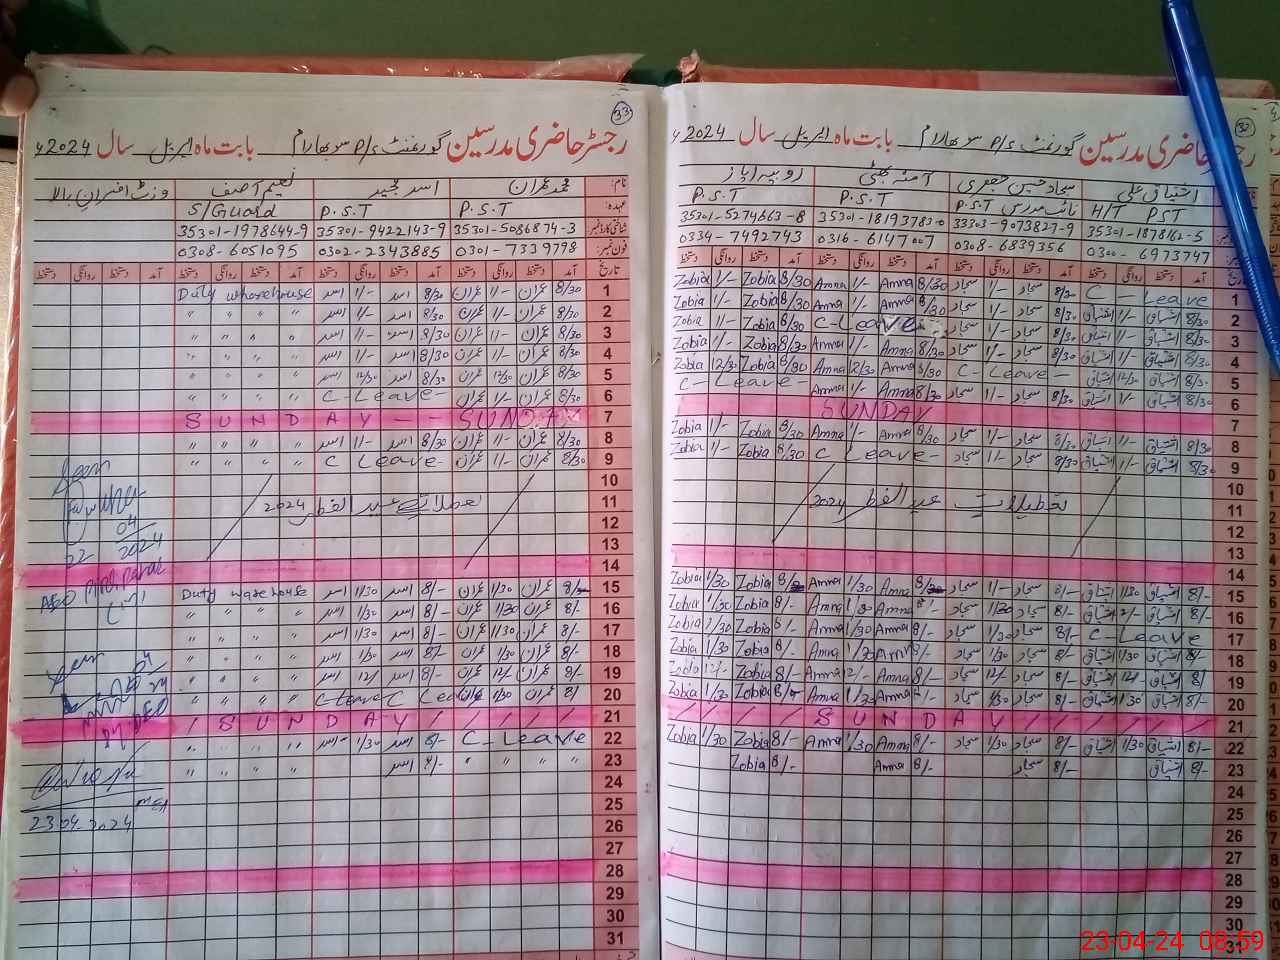 33
رجسٹر حاضری مدرسین گورنمنٹ P/S سوبھارام بابت ماہ اپریل سال 2024ء
نام: محمد عمران اسد مجید نعیم آصف وزٹ افسران بالا
عہدہ: P.S.T P.S.T S/Guard
شناختی کارڈ نمبر: 35301-5086874-3 35301-9422143-9 35301-1978644-9
فون نمبر: 0301-7339798 0302-2343885 0308-6051095
تاریخ آمد دستخط روانگی دستخط آمد دستخط روانگی دستخط آمد دستخط روانگی دستخط آمد دستخط روانگی دستخط
1 8/30 عمران 1/- عمران 8/30 اسد 1/- اسد Duty wharehouse
2 8/30 عمران 1/- عمران 8/30 اسد 1/- اسد " " " "
3 8/30 عمران 1/- عمران 8/30 اسد 1/- اسد " " " "
4 8/30 عمران 1/- عمران 8/30 اسد 1/- اسد " " " "
5 8/30 عمران 12/30 عمران 8/30 اسد 12/30 اسد " " " "
6 8/30 عمران 1/- عمران C-Leave- " " " "
7 SUNDAY -- SUNDAY
8 8/30 عمران 1/- عمران 8/30 اسد 1/- اسد " " " "
9 8/30 عمران 1/- عمران C Leave- " " " "
10
11 تعطیلات عید الفطر 2024
12
13
14
15 8/- عمران 1/30 عمران 8/- اسد 1/30 اسد Duty warehouse
16 8/- عمران 1/30 عمران 8/- اسد 1/30 اسد " " " "
17 8/- عمران 1/30 عمران 8/- اسد 1/30 اسد " " " "
18 8/- عمران 1/30 عمران 8/- اسد 1/30 اسد " " " "
19 8/- عمران 12/- عمران 8/- اسد 12/ اسد " " " "
20 8/ عمران 1/30 عمران C-Leave C Leave " " " "
21 / SUNDAY / / / / /
22 C-Leave 8/- اسد 1/30 اسد " " " "
23 " " " " 8/- اسد " " " "
24
25
26
27
28
29
30
31
Seen
04
22 2024
Seen
04
24
DY DEO
MEA
23.04-2024
32
رجسٹر حاضری مدرسین گورنمنٹ P/S سوبھارام بابت ماہ اپریل سال 2024ء
اشتیاق علی سجاد حسین جعفری آمنہ بھٹی زوبیہ ایاز
H/T PST نائب مدرس P.S.T P.S.T P.S.T
35301-1878162-5 33303-9073827-9 35301-1819378-0 35301-5274663-8
0300-6973747 0308-6839356 0316-6147007 0334-7492743
آمد دستخط روانگی دستخط آمد دستخط روانگی دستخط آمد دستخط روانگی دستخط آمد دستخط روانگی دستخط
1 C-Leave 8/30 سجاد 1/- سجاد 8/30 Amna 1/- Amna 8/30 Zobia 1/- Zobia
2 8/30 اشتیاق 1/- اشتیاق 8/30 سجاد 1/- سجاد 8/30 Amna 1/- Amna 8/30 Zobia 1/- Zobia
3 8/30 اشتیاق 1/- اشتیاق 8/30 سجاد 1/- سجاد C-Leave 8/30 Zobia 1/- Zobia
4 8/30 اشتیاق 1/- اشتیاق 8/30 سجاد 1/- سجاد 8/30 Amna 1/- Amna 8/30 Zobia 1/- Zobia
5 8/30 اشتیاق 12/30 اشتیاق C-Leave- 8/30 Amna 12/30 Amna 8/30 Zobia 12/30 Zobia
6 8/30 اشتیاق 1/- اشتیاق 8/30 سجاد 1/- سجاد 8/30 Amna 1/- Amna C-Leave-
7 SUNDAY
8 8/30 اشتیاق 1/- اشتیاق 8/30 سجاد 1/- سجاد 8/30 Amna 1/- Amna 8/30 Zobia 1/- Zobia
9 8/30 اشتیاق 1/- اشتیاق 8/30 سجاد 1/- سجاد C Leave- 8/30 Zobia 1/- Zobia
10
11 تعطیلات عید الفطر 2024
12
13
14
15 8/- اشتیاق 1/30 اشتیاق 8/- سجاد 1/- سجاد Amna 1/30 Amna 8/ Zobia 1/30 Zobia
16 8/- اشتیاق 2/- اشتیاق 8/- سجاد 1/30 سجاد 8/- Amna 1/30 Amna 8/- Zobia 1/30 Zobia
17 C-Leave 8/- سجاد 1/30 سجاد 8/- Amna 1/30 Amna 8/- Zobia 1/30 Zobia
18 8/- اشتیاق 1/30 اشتیاق 8/- سجاد 1/30 سجاد 8/- Amna 1/30 Amna 8/- Zobia 1/30 Zobia
19 8/- اشتیاق 12/- اشتیاق 8/- سجاد 12/- سجاد 8/- Amna 12/- Amna 8/- Zobia 12/- Zobia
20 8/- اشتیاق 1/30 اشتیاق 8/- سجاد 1/30 سجاد 8/- Amna 1/30 Amna 8/- Zobia 1/30 Zobia
21 / / / / SUNDAY / / / / /
22 8/- اشتیاق 1/30 اشتیاق 8/- سجاد 1/30 سجاد 8/- Amna 1/30 Amna 8/- Zobia 1/30 Zobia
23 8/- اشتیاق 8/- سجاد 8/- Amna 8/- Zobia
24
25
26
27
28
29
30
31
23-04-24 08:59